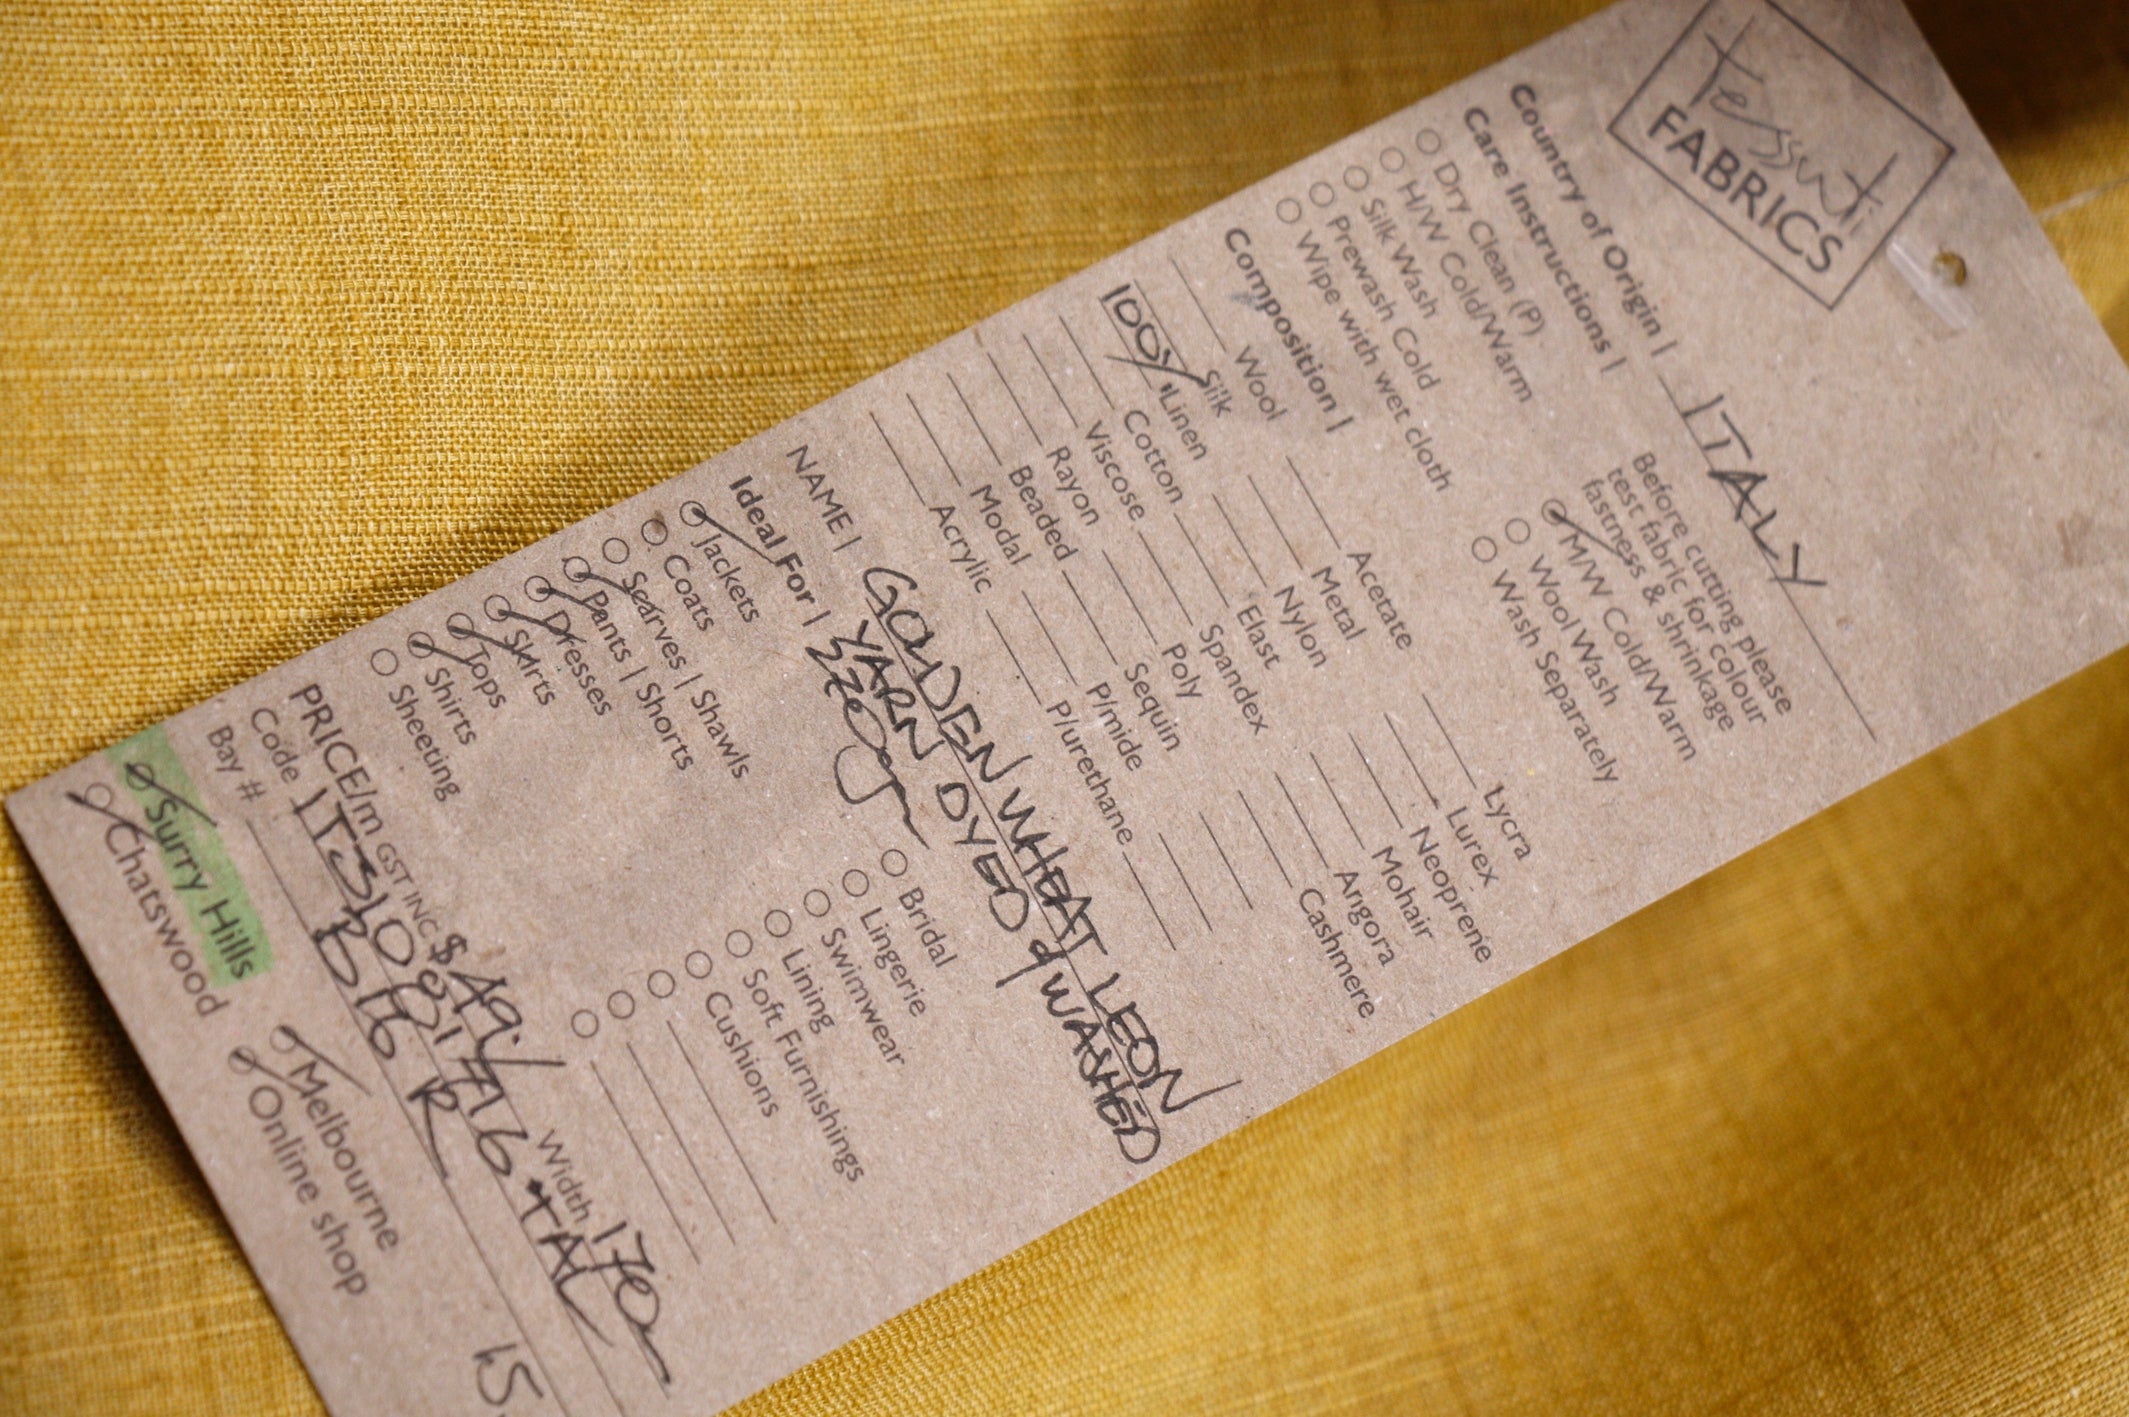 Tessuti
FABRICS
Country of Origin | ITALY
Care Instructions |
Dry Clean (P)
H/W Cold/Warm
Silk Wash
Prewash Cold
Wipe with wet cloth
Before cutting please
test fabric for colour
fastness & shrinkage
M/W Cold/Warm
Wool Wash
Wash Separately
Composition |
Wool
Silk
100% Linen
Cotton
Viscose
Rayon
Beaded
Modal
Acrylic
Acetate
Metal
Nylon
Elast
Spandex
Poly
Sequin
P/mide
P/urethane
Lycra
Lurex
Neoprene
Mohair
Angora
Cashmere
NAME | GOLDEN WHEAT LEON
YARN DYED & WASHED
220gsm
Ideal For |
Jackets
Coats
Scarves | Shawls
Pants | Shorts
Dresses
Skirts
Tops
Shirts
Sheeting
Bridal
Lingerie
Swimwear
Lining
Soft Furnishings
Cushions
PRICE/m GST INC $49./ Width 170
Code
Bay # B16 R
Surry Hills
Chatswood
Melbourne
Online shop